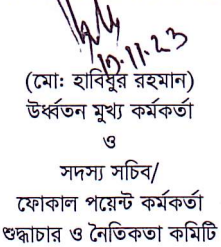 ১৯.১১.২৩
(মোঃ হাবিবুর রহমান)
উর্ধ্বতন মুখ্য কর্মকর্তা
ও
সদস্য সচিব/
ফোকাল পয়েন্ট কর্মকর্তা
শুদ্ধাচার ও নৈতিকতা কমিটি